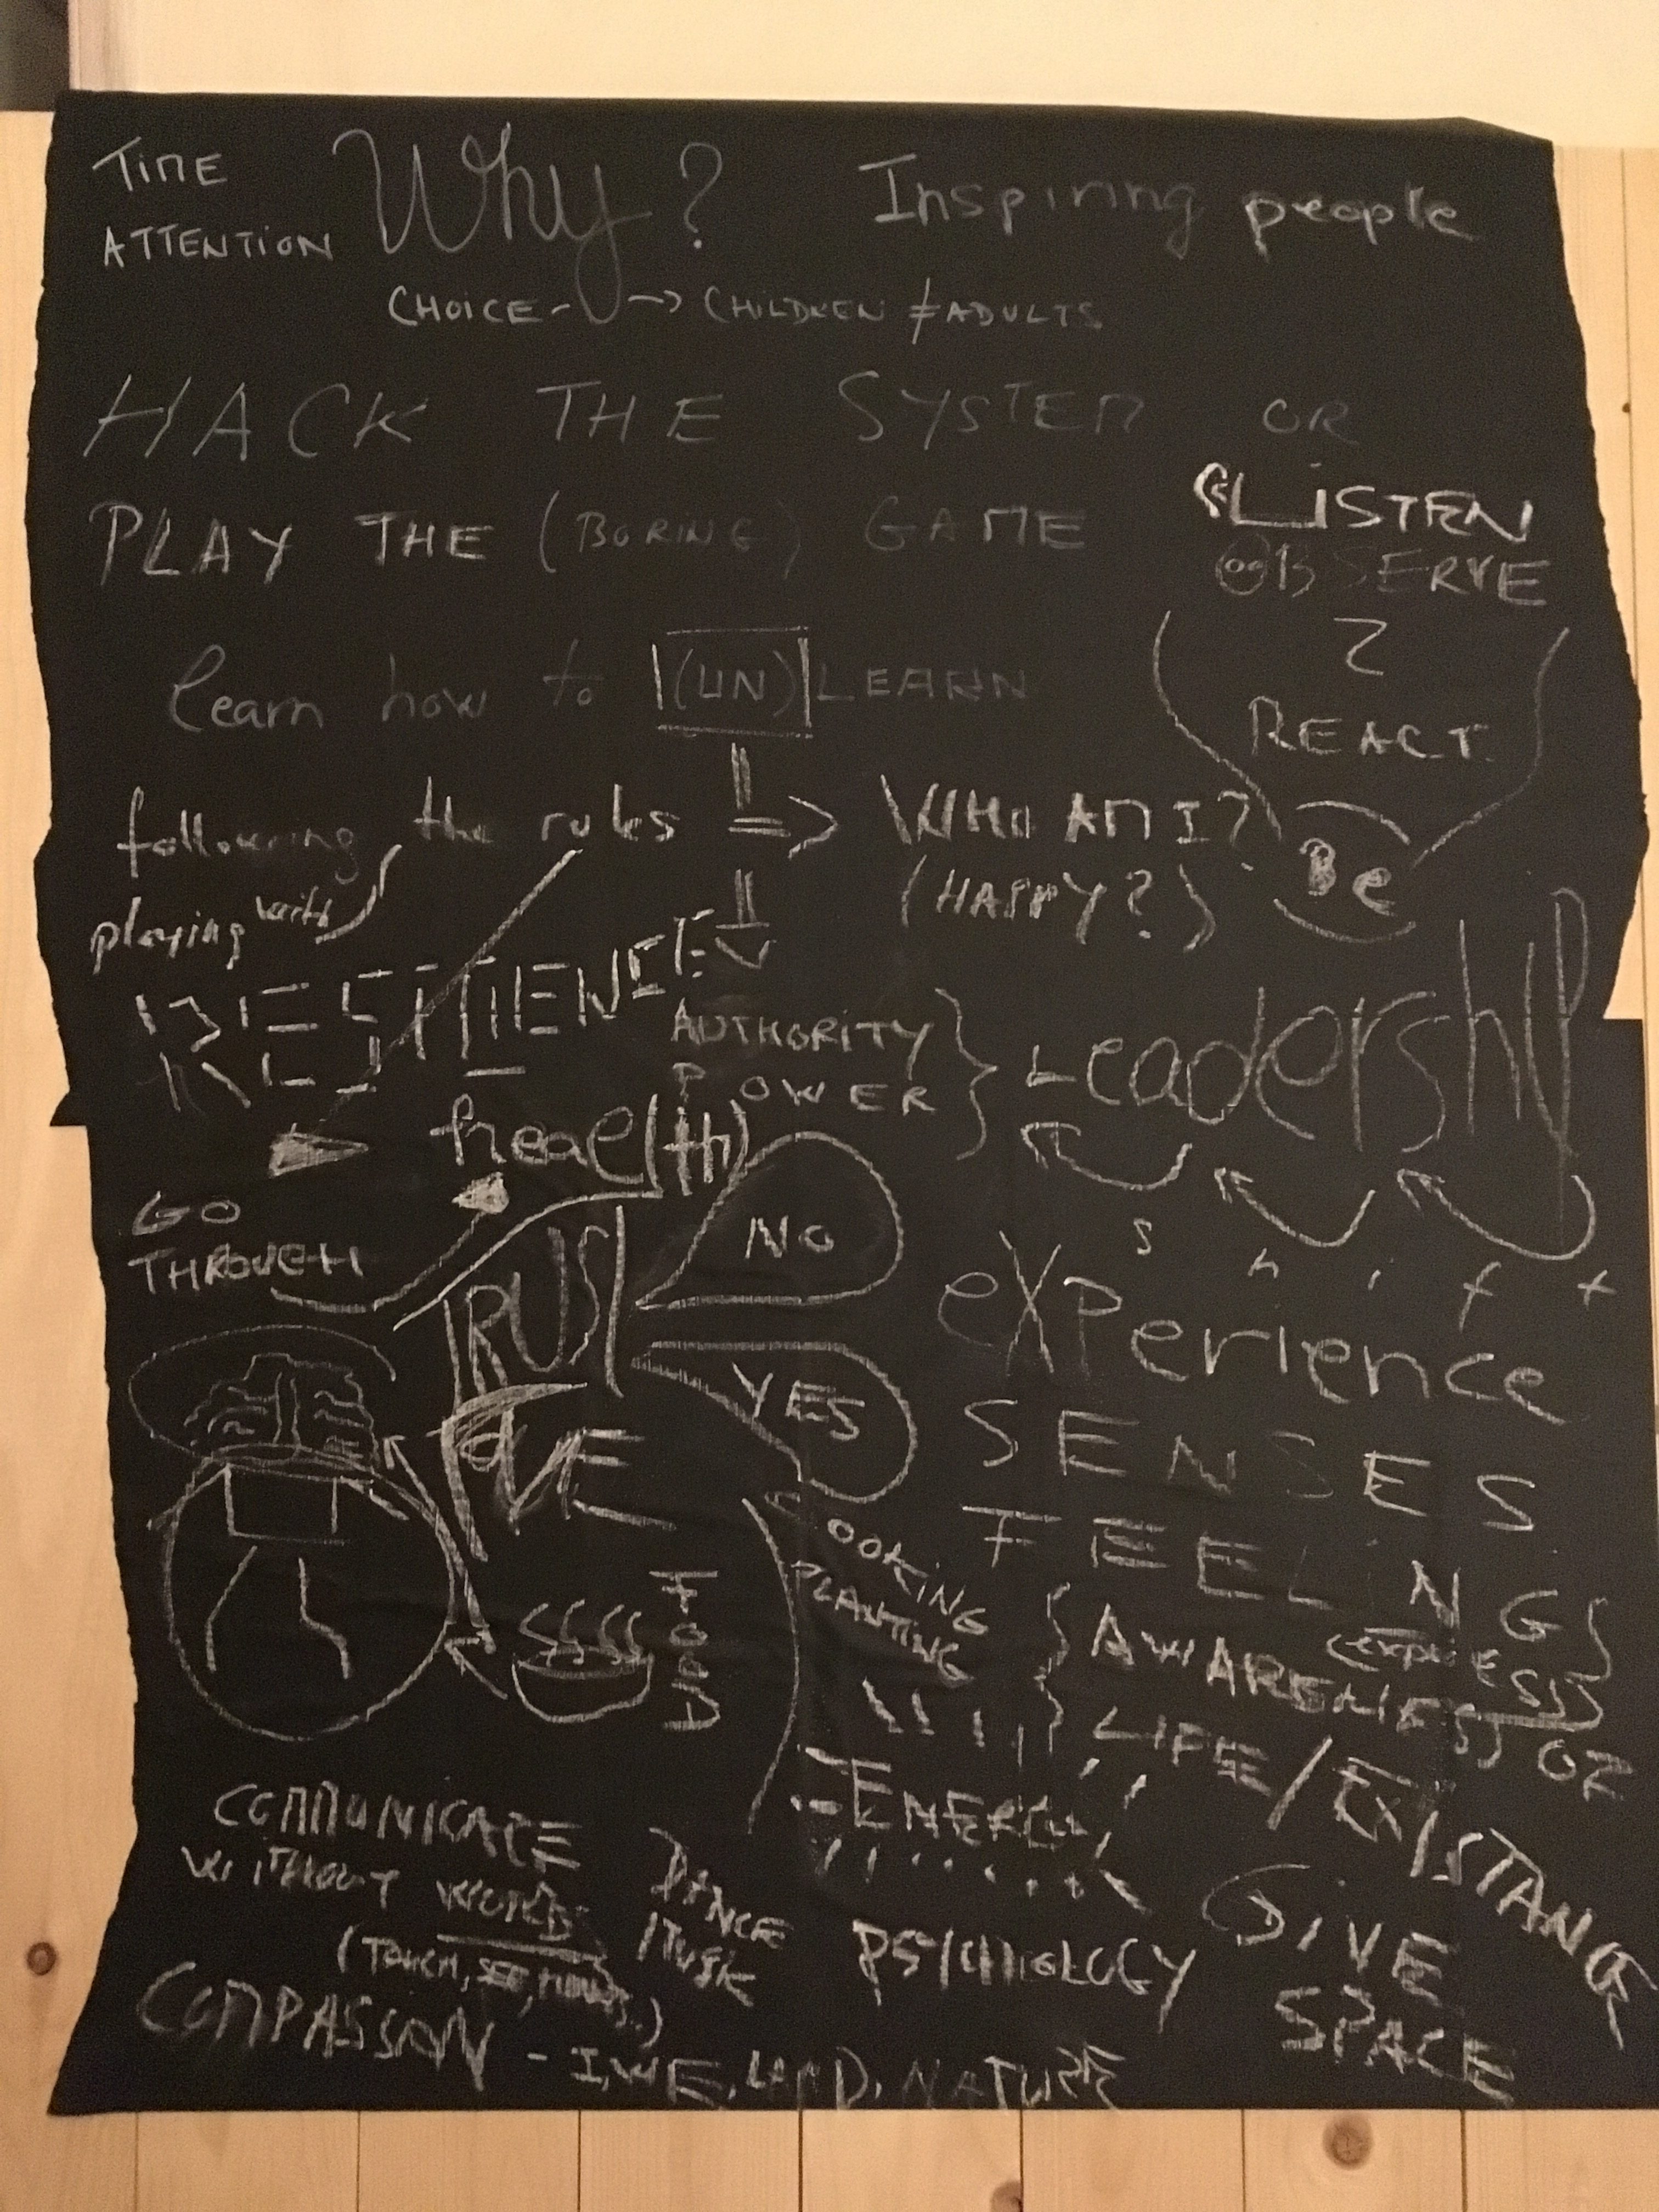 TIME
ATTENTION
Why?
Inspiring people
CHOICE → CHILDREN ≠ ADULTS
HACK THE SYSTEM OR
PLAY THE (BORING) GAME
LISTEN
OBSERVE
REACT
Be
learn how to (UN) LEARN
following the rules ⇒ WHO AM I?
playing with
(HAPPY?)
RESILIENCE
AUTHORITY
POWER
} Leadership
heal(th)
GO
THROUGH
shift
TRUST
NO
YES
experience
SENSES
FEELING
LOVE
FOOD
COOKING
PLANTING
AWARENESS
LIFE / EXISTANCE
ENERGY
COMMUNICATE
WITHOUT WORDS
DANCE
MUSIC
PSYCHOLOGY
GIVE
SPACE
COMPASSION - I, WE, LAND, NATURE